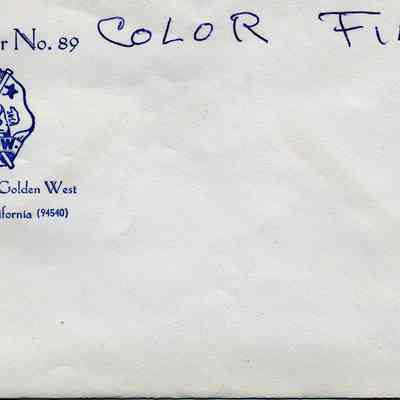 r No. 89 COLOR FI
W.
Golden West
ifornia (94540)